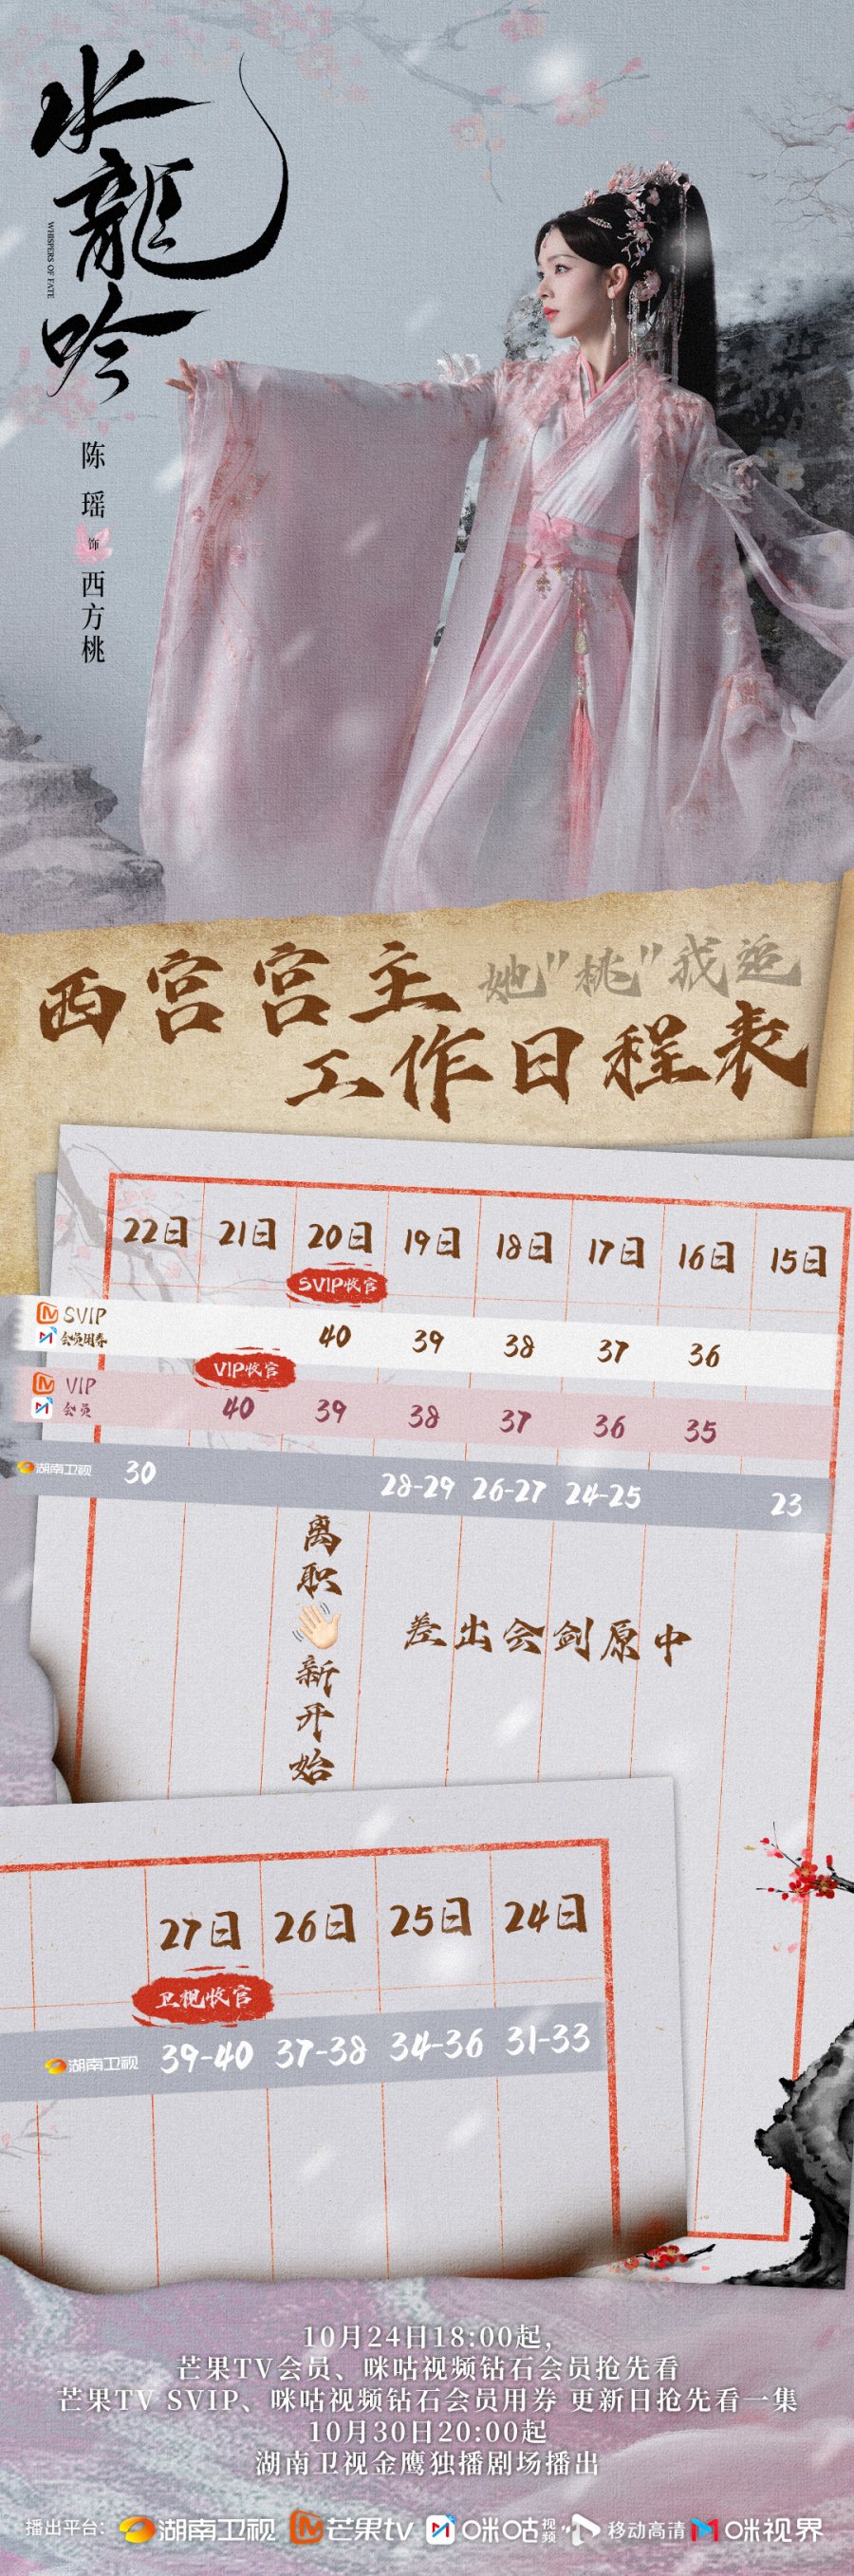 水龍吟
WHISPERS OF FATE
陈瑶
饰
西方桃
西宫宫主
她"桃"我追
工作日程表
22日 21日 20日 19日 18日 17日 16日 15日
SVIP收官
SVIP
会员用券
40 39 38 37 36
VIP收官
VIP
会员
40 39 38 37 36 35
湖南卫视 30 28-29 26-27 24-25 23
离职👋🏻新开始
差出会剑原中
27日 26日 25日 24日
卫视收官
湖南卫视 39-40 37-38 34-36 31-33
10月24日18:00起,
芒果TV会员、咪咕视频钻石会员抢先看
芒果TV SVIP、咪咕视频钻石会员用券 更新日抢先看一集
10月30日20:00起
湖南卫视金鹰独播剧场播出
播出平台: 湖南卫视 芒果tv 咪咕视频 移动高清 咪视界